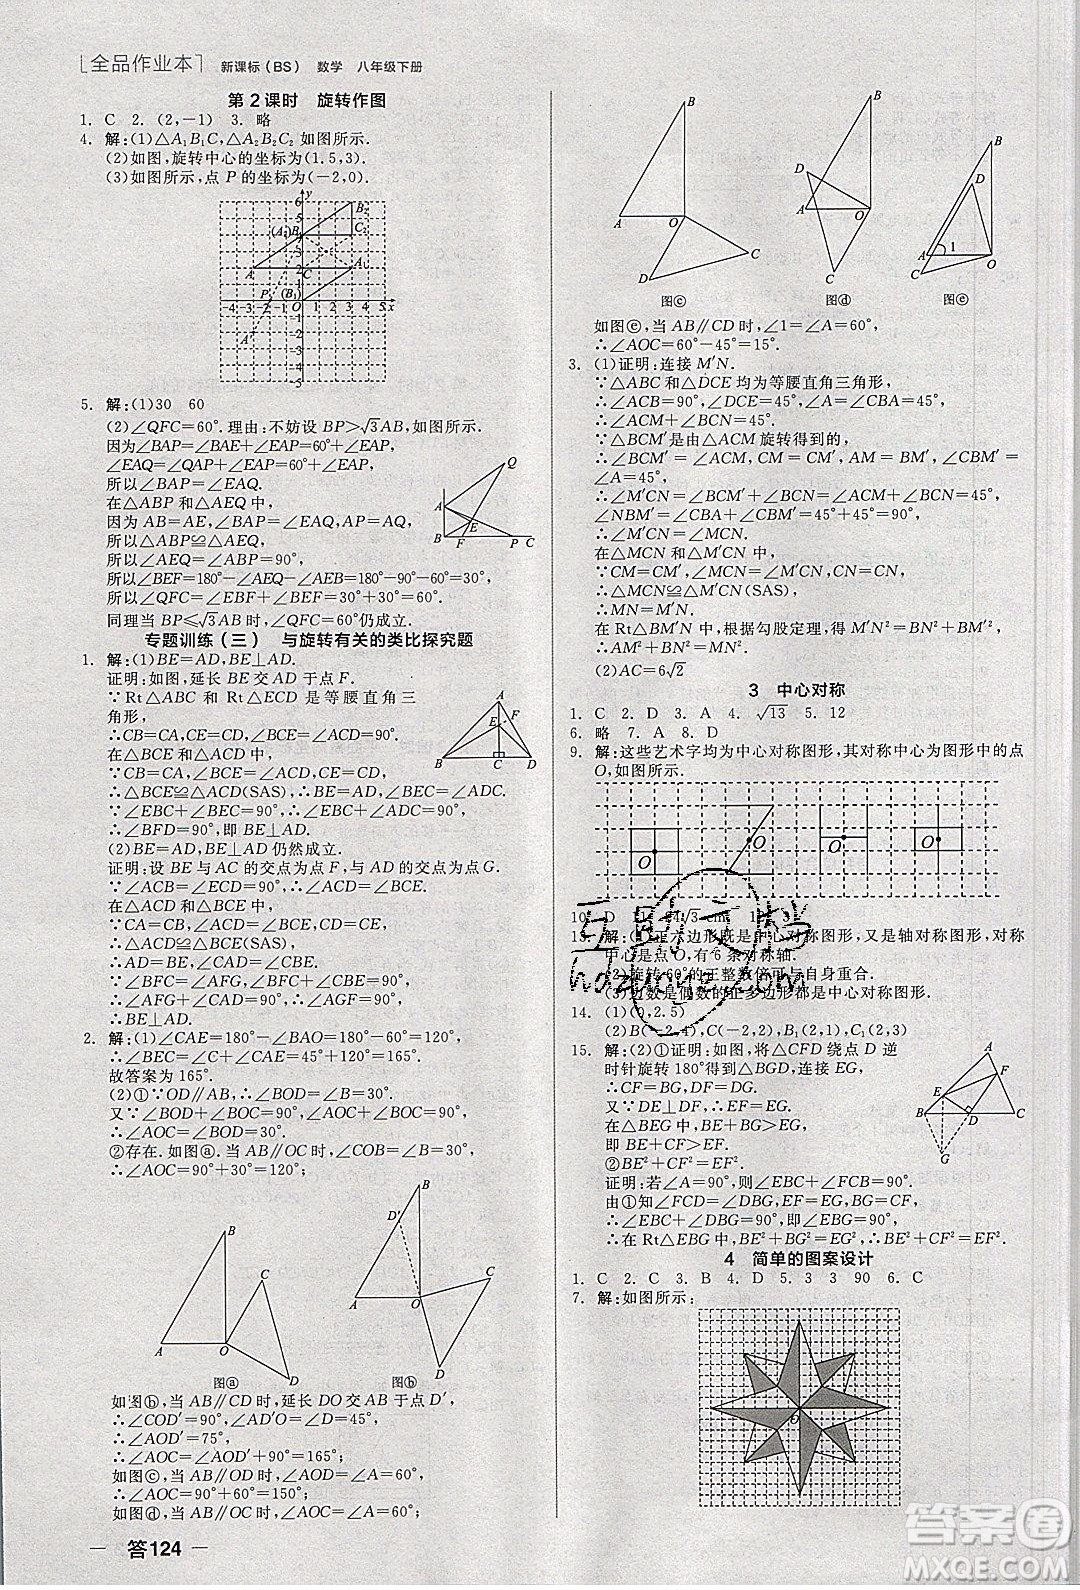 [全品作业本] 新课标(BS) 数学 八年级下册
第2课时 旋转作图
1. C 2. (2,-1) 3. 略
4. 解:(1)△A₁B₁C,△A₂B₂C₂如图所示.
(2)如图,旋转中心的坐标为(1.5,3).
(3)如图所示,点P的坐标为(-2,0).
5. 解:(1)30 60
(2)∠QFC=60°.理由:不妨设BP>√3AB,如图所示.
因为∠BAP=∠BAE+∠EAP=60°+∠EAP,
∠EAQ=∠QAP+∠EAP=60°+∠EAP,
所以∠BAP=∠EAQ.
在△ABP和△AEQ中,
因为AB=AE,∠BAP=∠EAQ,AP=AQ,
所以△ABP≌△AEQ.
所以∠AEQ=∠ABP=90°,
所以∠BEF=180°-∠AEQ-∠AEB=180°-90°-60°=30°,
所以∠QFC=∠EBF+∠BEF=30°+30°=60°.
同理当BP≤√3AB时,∠QFC=60°仍成立.
专题训练(三) 与旋转有关的类比探究题
1. 解:(1)BE=AD,BE⊥AD.
证明:如图,延长BE交AD于点F.
∵Rt△ABC和Rt△ECD是等腰直角三
角形,
∴CB=CA,CE=CD,∠ACB=90°.
在△BCE和△ACD中,
∵CB=CA,∠BCE=∠ACD,CE=CD,
∴△BCE≌△ACD(SAS),∴BE=AD,∠EBC=∠DAC.
∵∠EBC+∠BEC=90°,∠BEC=∠AEF,
∴∠BFD=90°,即BE⊥AD.
(2)BE=AD,BE⊥AD仍然成立.
证明:设BE与AC的交点为点F,与AD的交点为点G.
∵∠ACB=∠ECD=90°,∴∠ACD=∠BCE.
在△ACD和△BCE中,
∵CA=CB,∠ACD=∠BCE,CD=CE,
∴△ACD≌△BCE(SAS),
∴AD=BE,∠CAD=∠CBE.
∵∠AFG=∠BFC,∠BFC+∠CBE=90°,
∴∠AFG+∠CAD=90°,∴∠AGF=90°,
∴BE⊥AD.
2. 解:(1)∠CAE=180°-∠BAO=180°-60°=120°,
∴∠BEC=∠C+∠CAE=45°+120°=165°.
故答案为165°.
(2)①∵OD∥AB,∴∠BOD=∠B=30°.
又∵∠BOD+∠BOC=90°,∠AOC+∠BOC=90°,
∴∠AOC=∠BOD=30°.
②存在.如图ⓐ,当AB∥OC时,∠COB=∠B=30°,
∴∠AOC=90°+30°=120°;
图ⓐ 图ⓑ
如图ⓑ,当AB∥CD时,延长DO交AB于点D′,
∴∠COD′=90°,∠AD′O=∠D=45°,
∴∠AOD′=75°,
∴∠AOC=∠AOD′+90°=165°;
如图ⓒ,当AB∥OD时,∠AOC=150°;
如图ⓓ,当AB∥OC时,∠AOC=∠A=60°;
图ⓒ 图ⓓ 图ⓔ
如图ⓔ,当AB∥CD时,∠1=∠A=60°,
∴∠AOC=60°-45°=15°.
3. (1)证明:连接M′N.
∵△ABC和△DCE均为等腰直角三角形,
∴∠ACB=90°,∠DCE=45°,∠A=∠CBA=45°,
∴∠ACM+∠BCN=45°.
∵△BCM′是由△ACM旋转得到的,
∴∠BCM′=∠ACM,CM=CM′,AM=BM′,∠CBM′=
∠A=45°,
∴∠M′CN=∠BCM′+∠BCN=∠ACM+∠BCN=45°,
∠NBM′=∠CBA+∠CBM′=45°+45°=90°,
∴∠M′CN=∠MCN.
在△MCN和△M′CN中,
∵CM=CM′,∠MCN=∠M′CN,CN=CN,
∴△MCN≌△M′CN(SAS),
∴MN=M′N.
在Rt△BM′N中,根据勾股定理,得M′N²=BM′²+BN²,
∴AM²+BN²=MN².
(2)AC=6√2
3 中心对称
1. C 2. D 3. A 4. √13 5. 12
6. 略 7. A 8. D
9. 解:这些艺术字均为中心对称图形,其对称中心为图形中的点
O,如图所示.
13. 解:(1)正六边形既是中心对称图形,又是轴对称图形,对称
中心是点O,有6条对称轴.
(2)旋转60°的正整数倍可与自身重合.
(3)边数是偶数的正多边形都是中心对称图形.
14. (1)(0,2.5)
(2)B(-2,4),C(-2,2),B₁(2,1),C₁(2,3)
15. 解:(2)①证明:如图,将△CFD绕点D逆
时针旋转180°得到△BGD,连接EG,
∴CF=BG,DF=DG.
又∵DE⊥DF,∴EF=EG.
在△BEG中,BE+BG>EG,
即BE+CF>EF.
②BE²+CF²=EF².
证明:若∠A=90°,则∠EBC+∠FCB=90°.
由①知∠FCD=∠DBG,EF=EG,BG=CF,
∴∠EBC+∠DBG=90°,即∠EBG=90°,
∴在Rt△EBG中,BE²+BG²=EG²,∴BE²+CF²=EF².
4 简单的图案设计
1. C 2. C 3. B 4. D 5. 3 3 90 6. C
7. 解:如图所示:
— 答124 —
互助文档
hdzuoye.com
答案圈
MXQE.COM